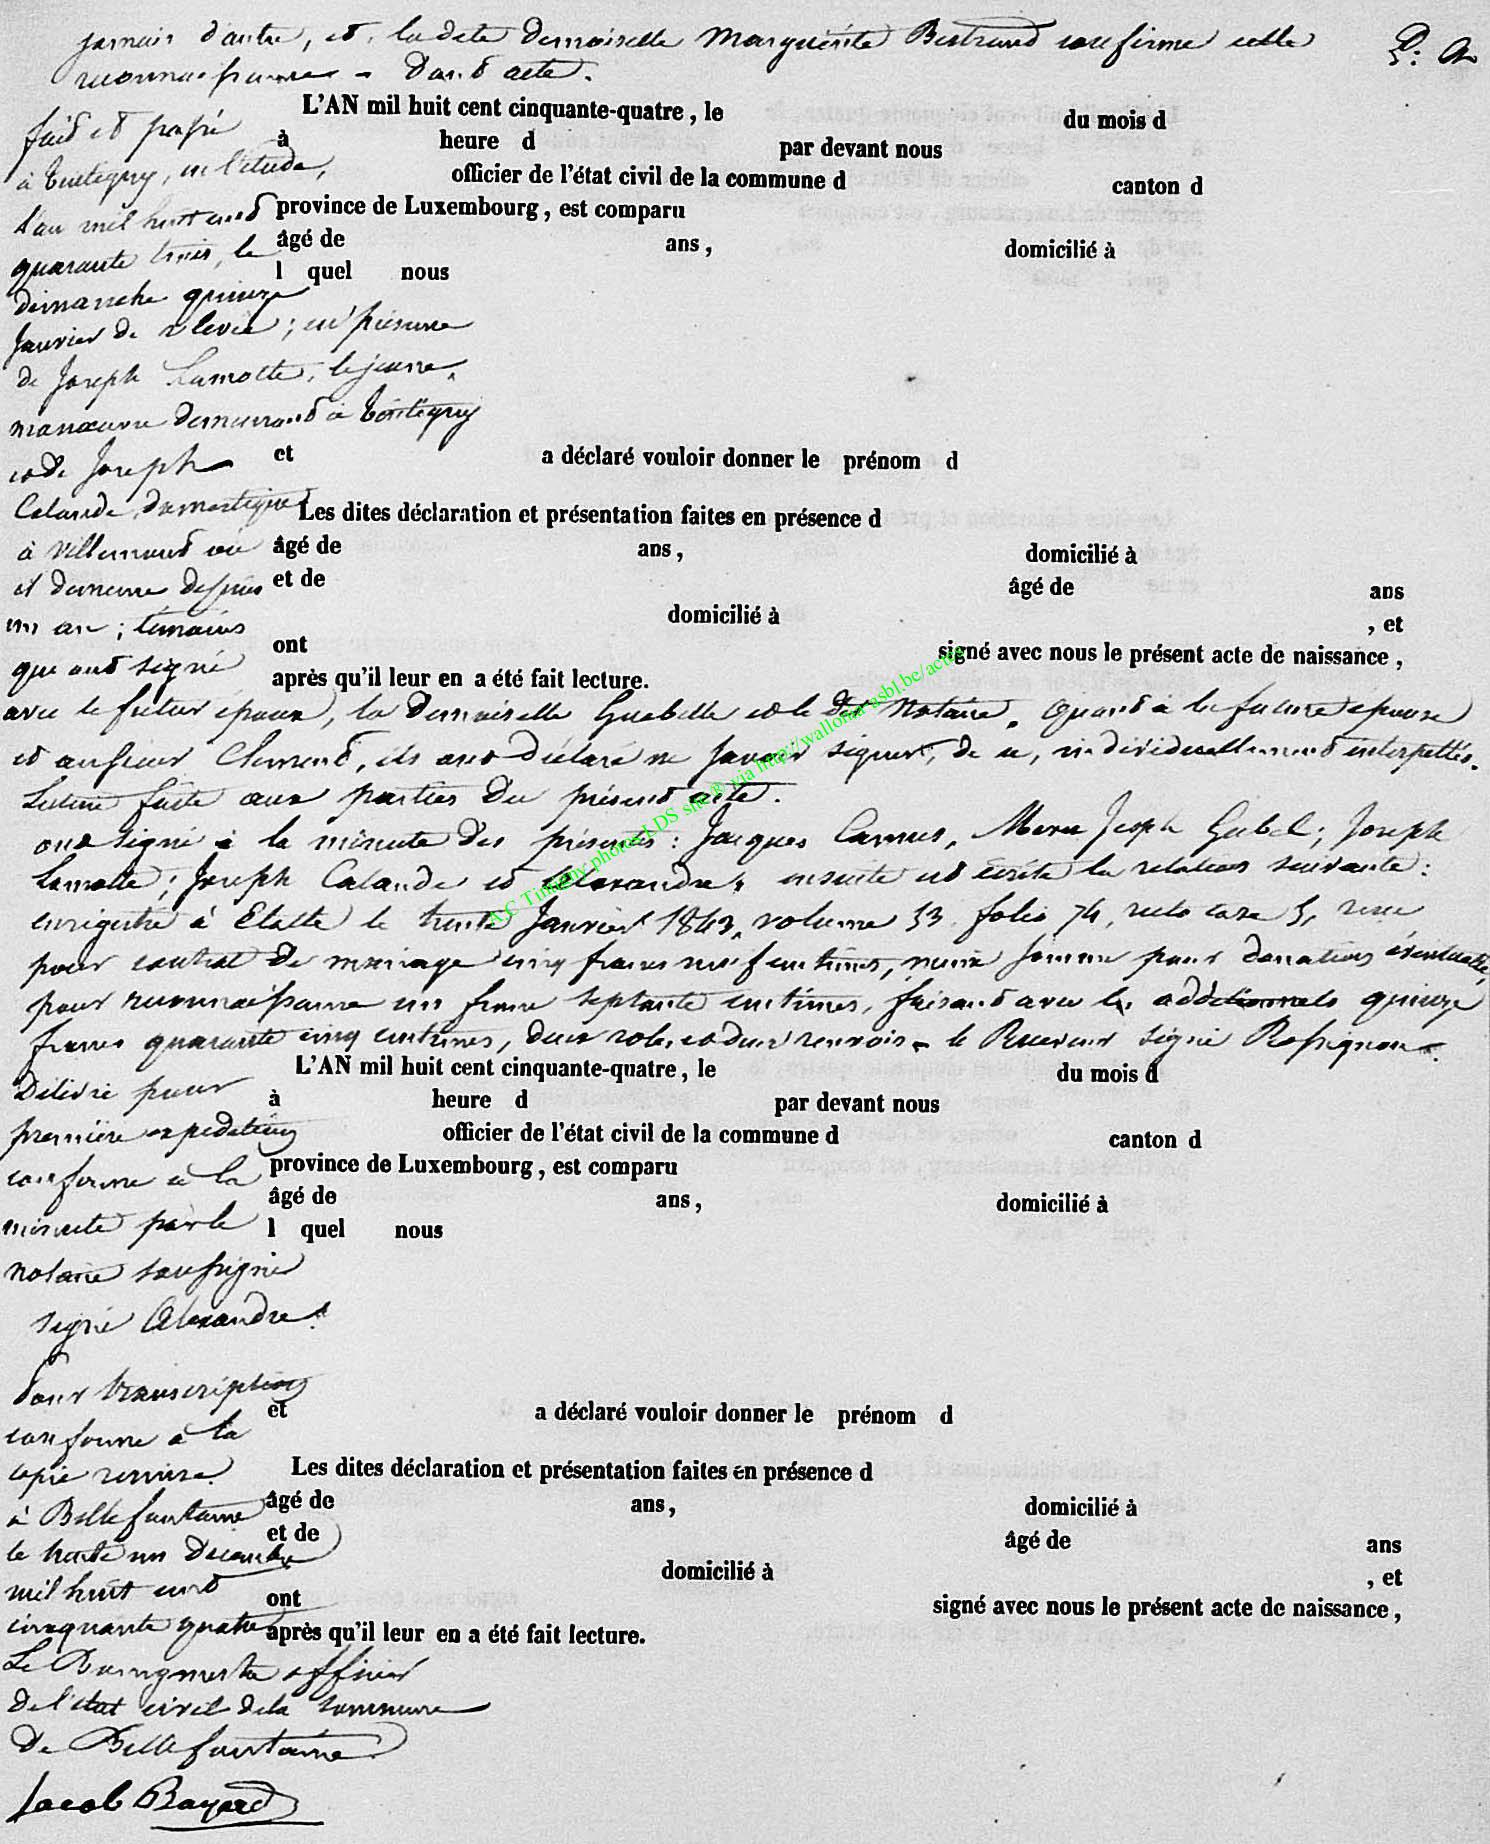 jamais d'autre, et la dite demoiselle Marguerite Bertrand confirme cette
reconnaissance - dont acte.
L'AN mil huit cent cinquante-quatre, le du mois d
fait et passé
à heure d par devant nous
à Tintigny, en l'étude,
officier de l'état civil de la commune d canton d
l'an mil huit cent
province de Luxembourg, est comparu
quarante trois, le
âgé de ans, domicilié à
l quel nous
dimanche quinze
Janvier de relevée; en présence
de Joseph Lamotte, le jeune,
manœuvre demeurant à Tintigny
et de Joseph
et a déclaré vouloir donner le prénom d
Calande, domestique
Les dites déclaration et présentation faites en présence d
à Villemont où
âgé de ans, domicilié à
il demeure depuis
et de âgé de ans
un an; témoins
domicilié à , et
ont signé avec nous le présent acte de naissance,
que ont signé
après qu'il leur en a été fait lecture.
avec le futur époux, la demoiselle et le dit Notaire. Quant à la future épouse
et au sieur Clement, ils ont déclaré ne savoir signer, de ce, individuellement interpellés.
Lecture faite aux parties du présent acte.
ont signé à la minute des présentes: Jacques Camus, Joseph ; Joseph
Lamotte; Joseph Calande et Alexandre, ensuite est écrite la relation suivante:
enrigistré à Etalle le trente Janvier 1843, volume 33 folio 74, recto case 5, reçu
pour contrat de mariage cinq francs neuf centimes, même somme pour donations éventuelle
pour reconnaissance un franc septante centimes, faisant avec les additionnels quinze
francs quarante cinq centimes, deux role, et deux renvois - le Receveur signé Rossignon.
L'AN mil huit cent cinquante-quatre, le du mois d
Délivré pour
à heure d par devant nous
première expédition
officier de l'état civil de la commune d canton d
province de Luxembourg, est comparu
conforme à la
âgé de ans, domicilié à
minute par le
l quel nous
notaire soussigné
signé Alexandre.
Pour transcription
et a déclaré vouloir donner le prénom d
conforme à la
copie remise.
Les dites déclaration et présentation faites en présence d
à Bellefontaine
âgé de ans, domicilié à
et de âgé de ans
le trente un Décembre
domicilié à , et
mil huit cent
ont signé avec nous le présent acte de naissance,
cinquante quatre
après qu'il leur en a été fait lecture.
Le Bourgmestre officier
de l'état civil de la commune
de Bellefontaine
Jacob Bayard
A.C Tintigny photos LDS site ® via http://wallonia-asbl.be/actes